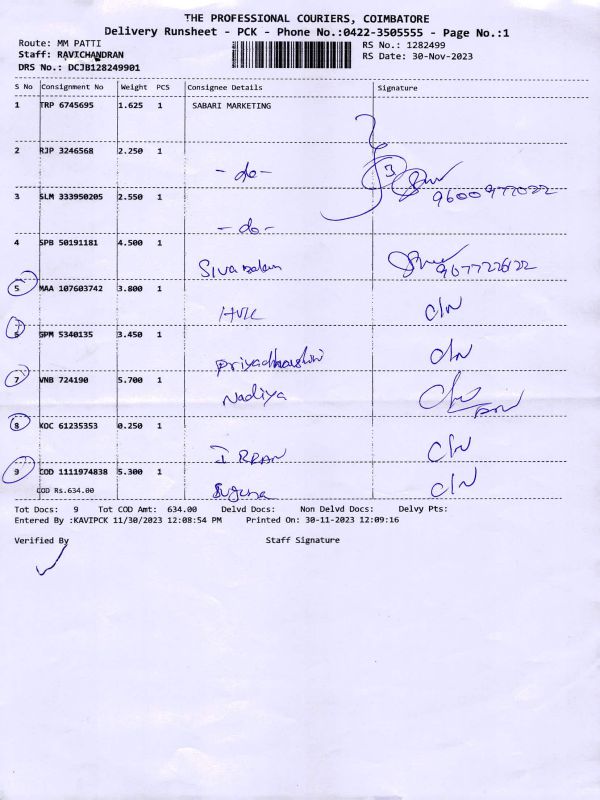 THE PROFESSIONAL COURIERS, COIMBATORE
Delivery Runsheet - PCK - Phone No.:0422-3505555 - Page No.:1
Route: MM PATTI
Staff: RAVICHANDRAN
DRS No.: DCJB128249901
RS No.: 1282499
RS Date: 30-Nov-2023
S No Consignment No Weight PCS Consignee Details Signature
1 TRP 6745695 1.625 1 SABARI MARKETING
2 RJP 3246568 2.250 1
- do - 3
9600977022
3 SLM 333950205 2.550 1
- do -
4 SPB 50191181 4.500 1
9677226122
5 MAA 107603742 3.800 1
C/N
6 GPM 5340135 3.450 1
Priyadharshini C/N
7 VNB 724190 5.700 1
Nadiya
8 KOC 61235353 0.250 1
C/N
9 COD 1111974838 5.300 1
COD Rs.634.00
Suguna C/N
Tot Docs: 9 Tot COD Amt: 634.00 Delvd Docs: Non Delvd Docs: Delvy Pts:
Entered By :KAVIPCK 11/30/2023 12:08:54 PM Printed On: 30-11-2023 12:09:16
Verified By Staff Signature